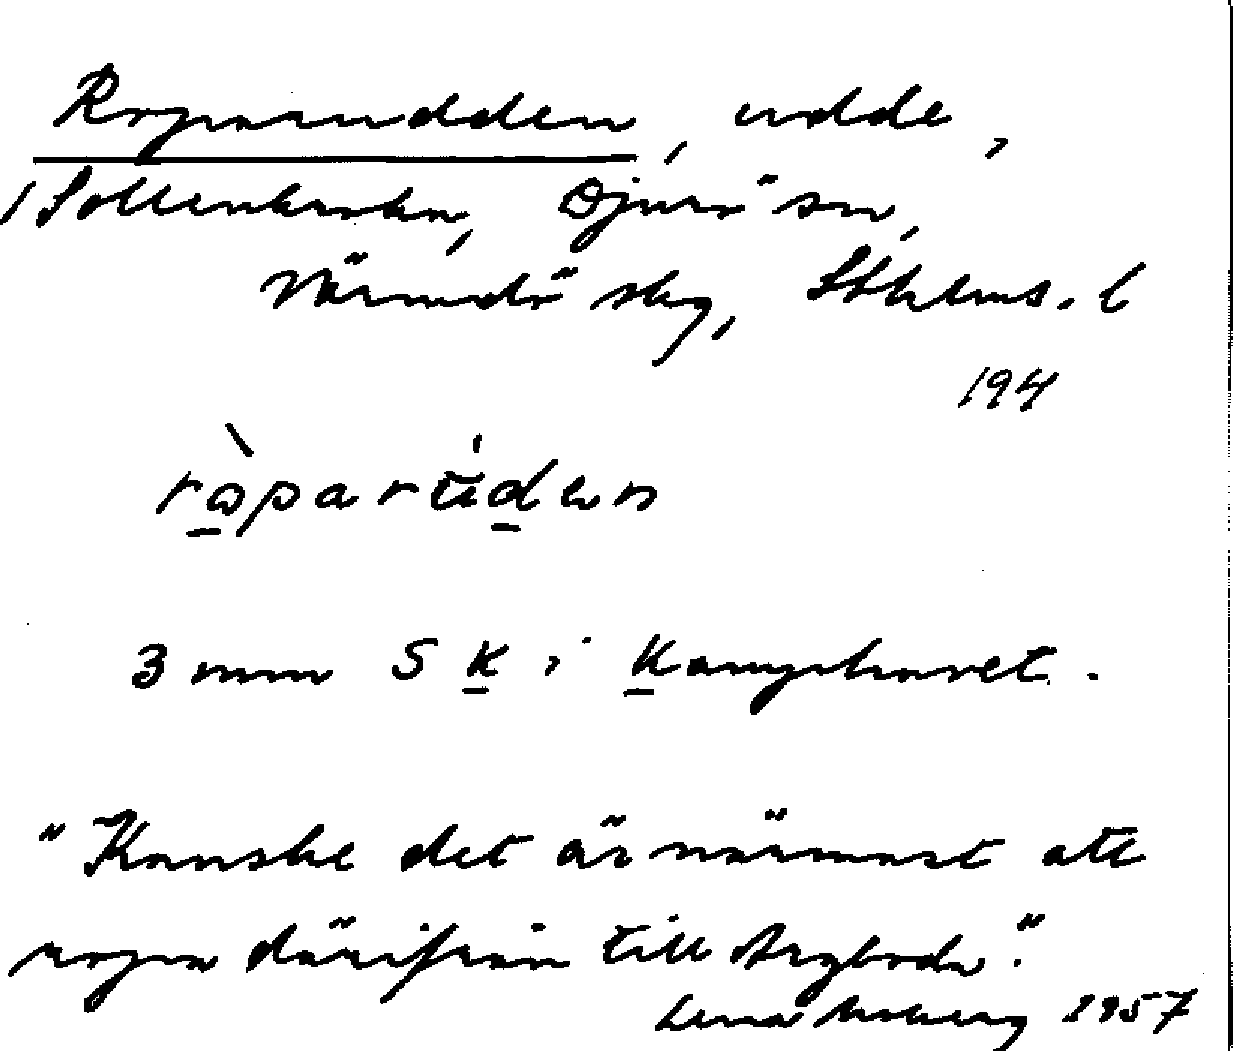 Roparudden, udde,
/Sollenkroka, Djurö sn,
Värmdö skg, Sthlms. l
194
ròparúden
3 mm S K i Kamphavet.
"Kanske det är närmast att
ropa därifrån till Argboda."
Lena Moberg 1957